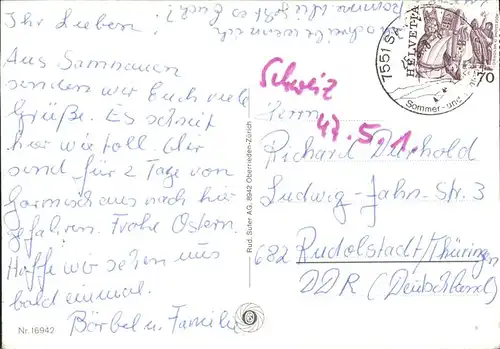 schreibe wenn ich
komme. Wie geht es Euch?
Ihr Lieben!
Aus Samnaun
senden wir Euch viele
Grüße. Es schneit
hier wie toll. Wir
sind für 2 Tage von
Garmisch aus nach hier
gefahren. Frohe Ostern.
Hoffe wir sehen uns
bald einmal.
Bärbel u. Familie
Nr. 16942
Rud. Suter AG, 8942 Oberrieden-Zürich
7551 S
HELVETIA
70
Sommer- und
Schweiz
47.5.1.
Herrn
Richard Dürhold
Ludwig-Jahn-Str. 3
682 Rudolstadt/Thüringen
DDR (Deutschland)